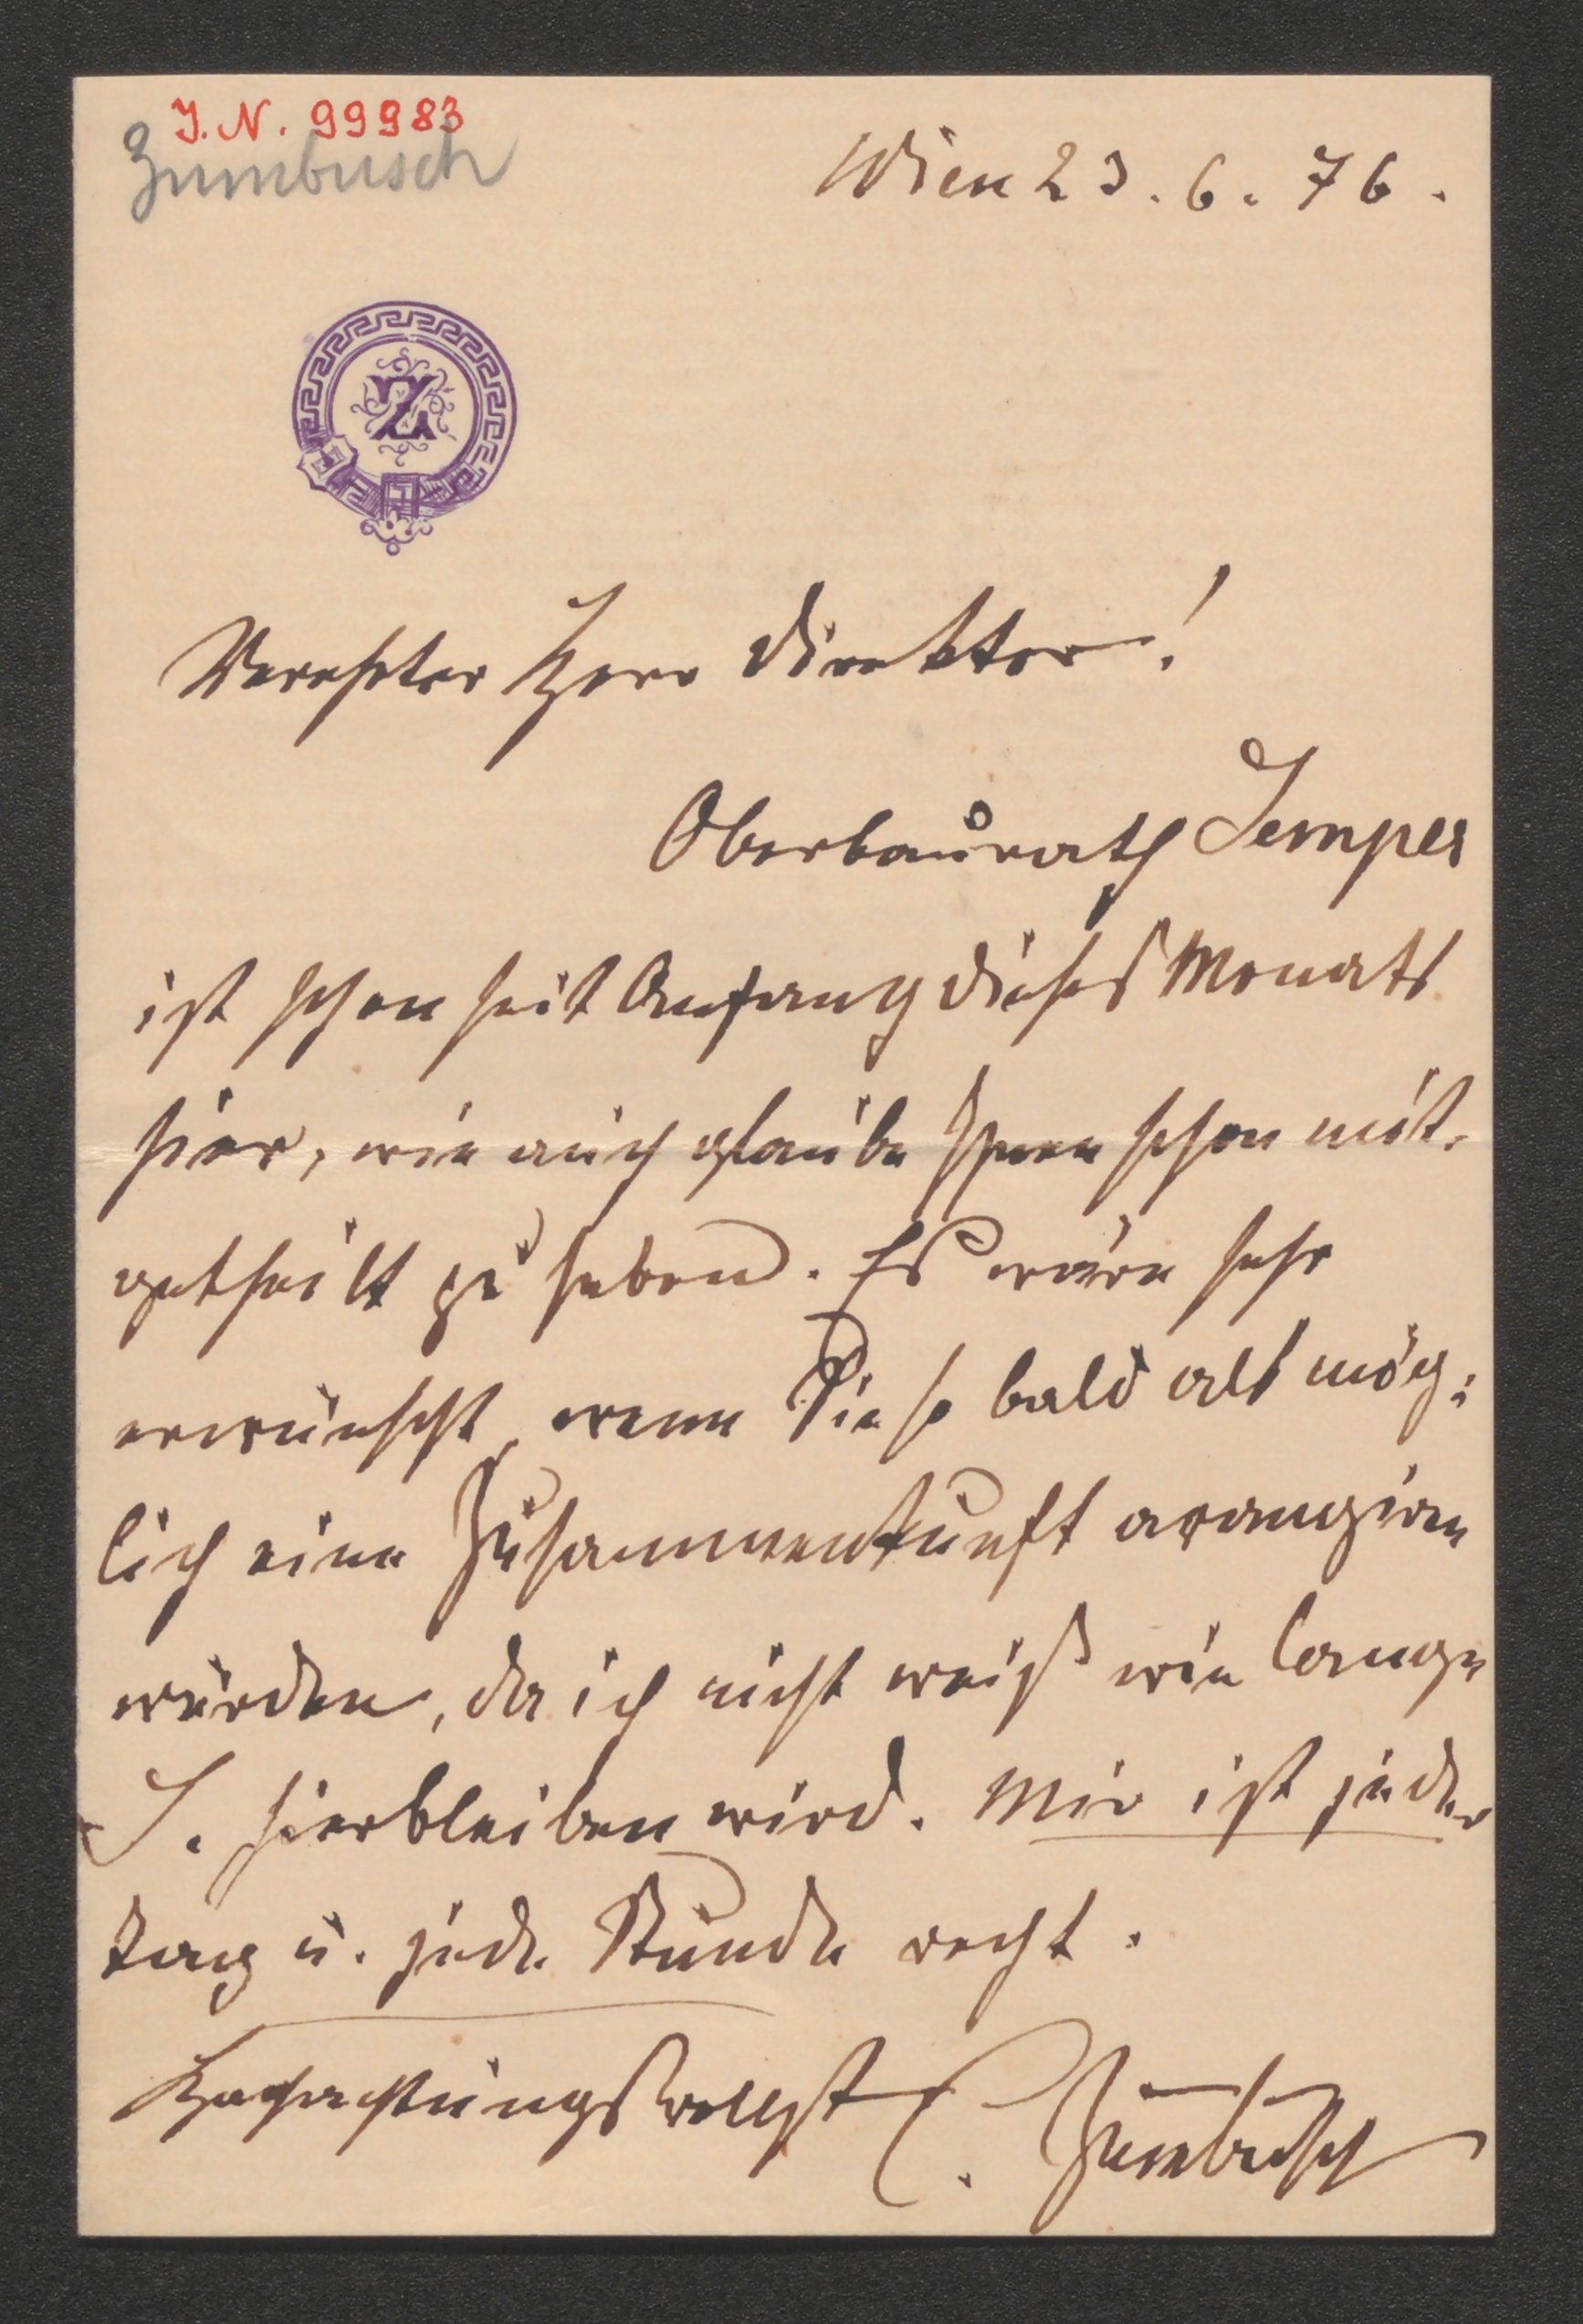 J. N. 99983
Zumbusch
Wien 23. 6. 76.
Z
Verehrter Herr Direktor!
Oberbaurath Semper
ist schon seit Anfang dieses Monats
hier, wie auch glaube Ihnen schon mit-
getheilt zu haben. Es wäre sehr
erwünscht, wenn Sie so bald als mög-
lich eine Zusammenkunft arangiren
würden, da ich nicht weiß wie lange
S. hierbleiben wird. Mir ist jeder
Tag u. jede Stunde recht.
Hochachtungsvollst C. Zumbusch